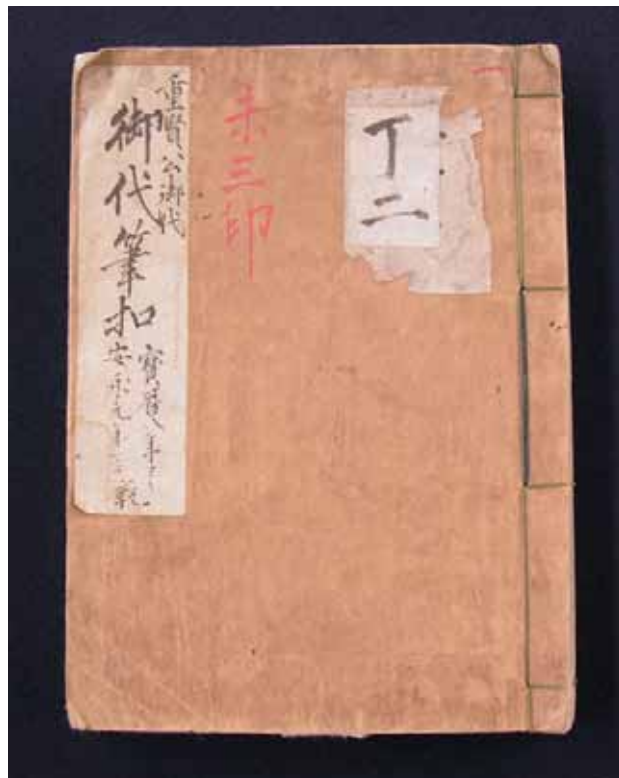 一
丁二
未三印
重賢公御代
御代筆扣
寶暦 年
安永元年